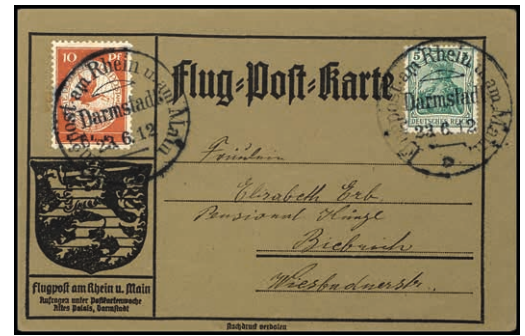 10 Pf
Flugpost am Rhein u. am Main
Darmstadt
23.6.12
Flug-Post-Karte
5
DEUTSCHES REICH
Flugpost am Rhein u. am Main
Darmstadt
23.6.12
Fräulein
Elisabeth Erb.
Pensionat
Biebrich
Wiesbadnerstr.
Flugpost am Rhein u. Main
Anfragen unter Postkartenwoche
Altes Palais, Darmstadt
Nachdruck verboten